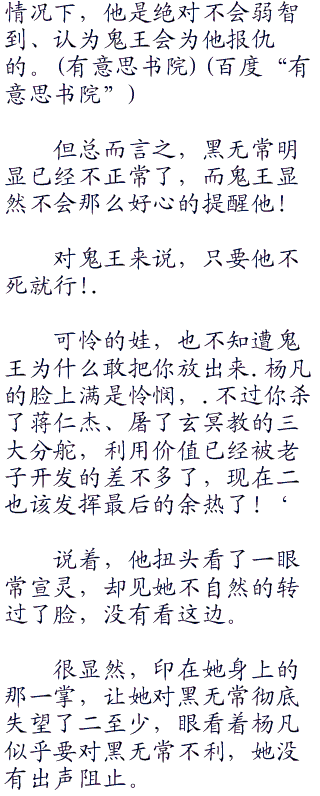 情况下，他是绝对不会弱智
到、认为鬼王会为他报仇
的。(有意思书院)(百度“有
意思书院”)
但总而言之，黑无常明
显已经不正常了，而鬼王显
然不会那么好心的提醒他！
对鬼王来说，只要他不
死就行!.
可怜的娃，也不知遭鬼
王为什么敢把你放出来.杨凡
的脸上满是怜悯，.不过你杀
了蒋仁杰、屠了玄冥教的三
大分舵，利用价值已经被老
子开发的差不多了，现在二
也该发挥最后的余热了！‘
说着，他扭头看了一眼
常宣灵，却见她不自然的转
过了脸，没有看这边。
很显然，印在她身上的
那一掌，让她对黑无常彻底
失望了二至少，眼看着杨凡
似乎要对黑无常不利，她没
有出声阻止。